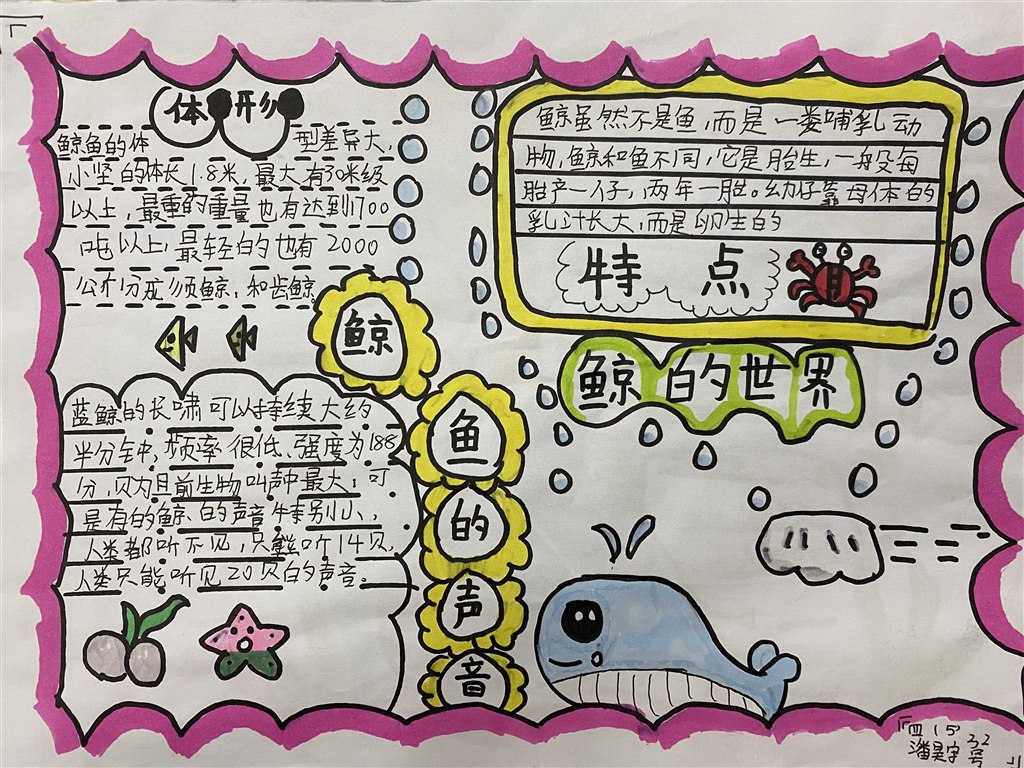 体形
鲸鱼的体 型差异大,
小坚的体长1.8米,最大有30米级
以上,最重的重量也有达到1700
吨以上,最轻的也有2000
公斤分成须鲸,和齿鲸。
鲸鱼的声音
蓝鲸的长啸可以持续大约
半分钟,频率很低、强度为188
分,贝为目前生物叫声中最大;可
是有的鲸的声音特别小,
人类都听不见,只能听14贝,
人类只能听见20贝的声音。
鲸虽然不是鱼,而是一类哺乳动
物,鲸和鱼不同,它是胎生,一般每
胎产一仔,两年一胎。幼仔靠母体的
乳汁长大,而是卵生的
特点
鲸的世界
四(5)
32号